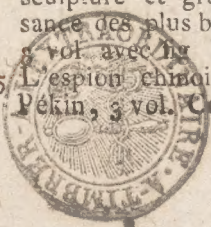 sculpture et gra
sance des plus b
vol. avec fig
L'espion chinoi
Pékin, 3 vol.
A TIMBRER